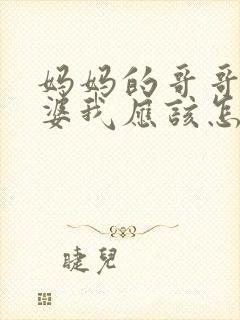 妈妈的哥哥
婆我應該怎
睫兒